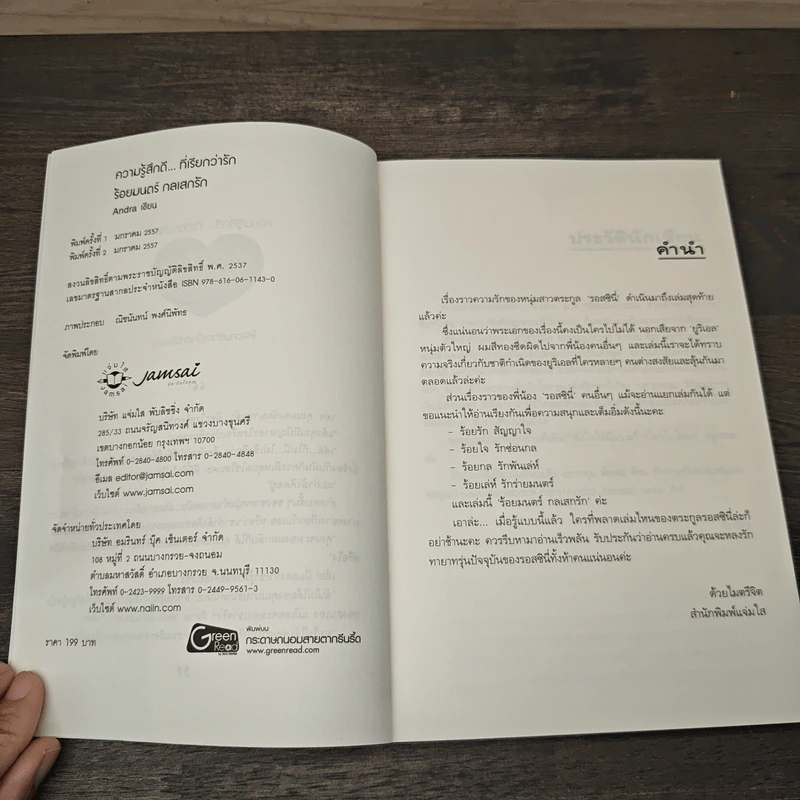 ความรู้สึกดี... ที่เรียกว่ารัก
ร้อยมนตร์ กลเสกรัก
Andra เขียน
พิมพ์ครั้งที่ 1 มกราคม 2557
พิมพ์ครั้งที่ 2 มกราคม 2557
สงวนลิขสิทธิ์ตามพระราชบัญญัติลิขสิทธิ์ พ.ศ. 2537
เลขมาตรฐานสากลประจำหนังสือ ISBN 978-616-06-1143-0
ภาพประกอบ ณิชนันทน์ พงศ์นิพัทธ
จัดพิมพ์โดย
แจ่มใส
jamsai
jamsai
บริษัท แจ่มใส พับลิชชิ่ง จำกัด
285/33 ถนนจรัญสนิทวงศ์ แขวงบางขุนศรี
เขตบางกอกน้อย กรุงเทพฯ 10700
โทรศัพท์ 0-2840-4800 โทรสาร 0-2840-4848
อีเมล editor@jamsai.com
เว็บไซต์ www.jamsai.com
จัดจำหน่ายทั่วประเทศโดย
บริษัท อมรินทร์ บุ๊ค เซ็นเตอร์ จำกัด
108 หมู่ที่ 2 ถนนบางกรวย-จงถนอม
ตำบลมหาสวัสดิ์ อำเภอบางกรวย จ.นนทบุรี 11130
โทรศัพท์ 0-2423-9999 โทรสาร 0-2449-9561-3
เว็บไซต์ www.naiin.com
ราคา 199 บาท
Green Read
พิมพ์บน
กระดาษถนอมสายตากรีนรี้ด
www.greenread.com
คำนำ
เรื่องราวความรักของหนุ่มสาวตระกูล 'รอสซินี่' ดำเนินมาถึงเล่มสุดท้าย
แล้วค่ะ
ซึ่งแน่นอนว่าพระเอกของเรื่องนี้คงเป็นใครไปไม่ได้ นอกเสียจาก 'ยูริเอล'
หนุ่มตัวใหญ่ ผมสีทองซีดผิดไปจากพี่น้องคนอื่นๆ และเล่มนี้เราจะได้ทราบ
ความจริงเกี่ยวกับชาติกำเนิดของยูริเอลที่ใครหลายๆ คนต่างสงสัยและลุ้นกันมา
ตลอดแล้วล่ะค่ะ
ส่วนเรื่องราวของพี่น้อง 'รอสซินี่' คนอื่นๆ แม้จะอ่านแยกเล่มกันได้ แต่
ขอแนะนำให้อ่านเรียงกันเพื่อความสนุกและเต็มอิ่มดังนี้นะคะ
- ร้อยรัก สัญญาใจ
- ร้อยใจ รักซ่อนกล
- ร้อยกล รักพันเล่ห์
- ร้อยเล่ห์ รักร่ายมนตร์
และเล่มนี้ 'ร้อยมนตร์ กลเสกรัก' ค่ะ
เอาล่ะ... เมื่อรู้แบบนี้แล้ว ใครที่พลาดเล่มไหนของตระกูลรอสซินี่ล่ะก็
อย่าช้านะคะ ควรรีบหามาอ่านเร็วพลัน รับประกันว่าอ่านครบแล้วคุณจะหลงรัก
ทายาทรุ่นปัจจุบันของรอสซินี่ทั้งห้าคนแน่นอนค่ะ
ด้วยไมตรีจิต
สำนักพิมพ์แจ่มใส